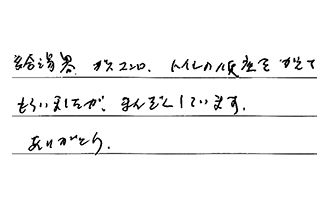 給湯器 ガスコンロ、トイレの便座をかえて
もらいましたが、まんぞくしています。
ありがとう。